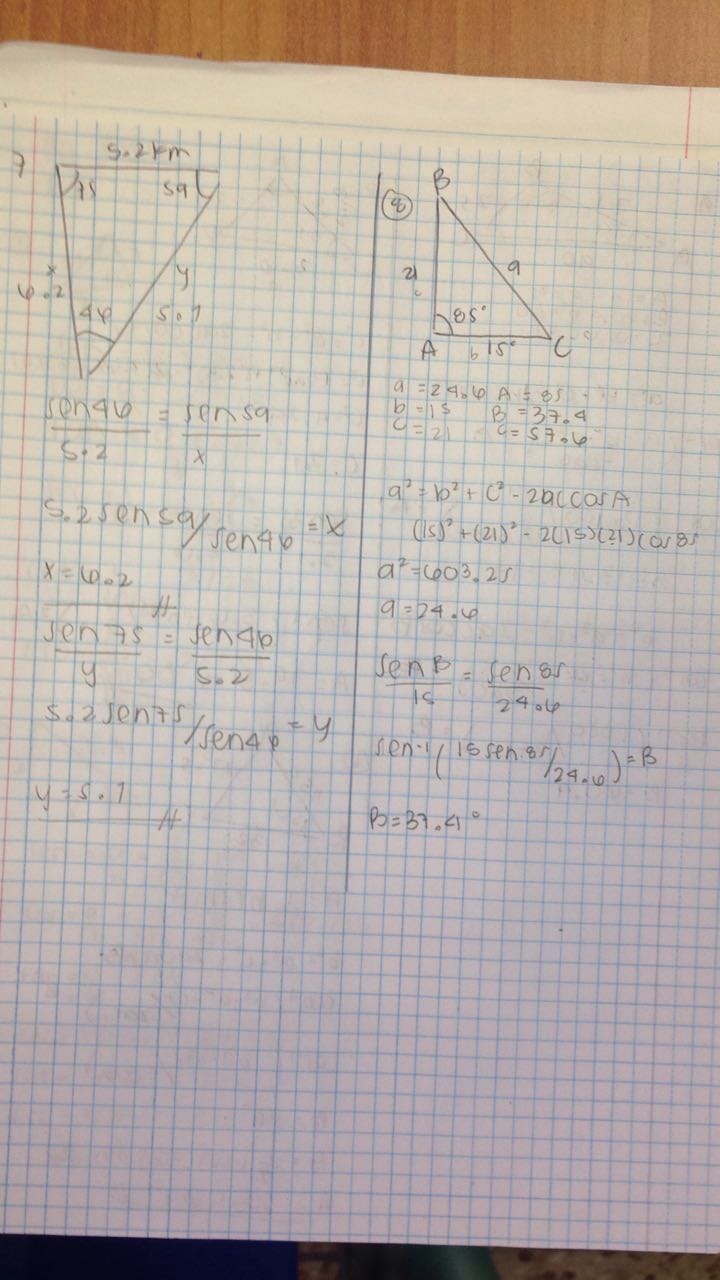 7
5.2km
75 59
x
y
6.2
46
5.1
sen46/5.2 = sen59/x
5.2sen59/sen46 = x
x=6.2
sen75/y = sen46/5.2
5.2sen75/sen46 = y
y=5.1
8
B
21
a
85°
A b 15° C
a =24.6 A = 85
b =15 B =37.4
c = 21 C=57.6
a²=b²+c²-2bc cosA
(15)²+(21)²-2(15)(21)cos85
a²=603.25
a=24.6
senB/15 = sen85/24.6
sen-1(15sen85/24.6)=B
B=37.4°